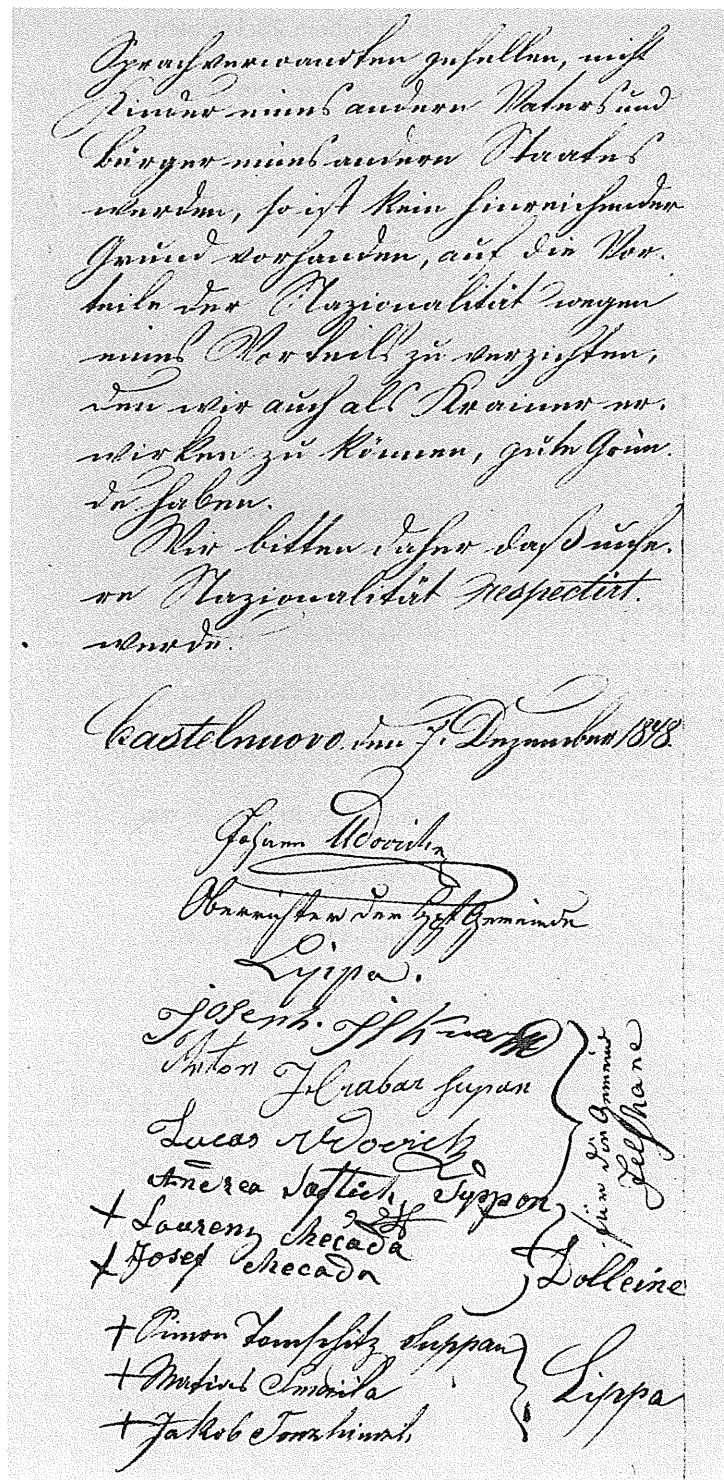 Sprachverwandten zufallen, nicht
Kinder eines andern Vaters und
Bürger eines andern Staates
werden, so ist kein hinreichender
Grund vorhanden, auf die Vor-
teile der Nazionalität wegen
eines Vorteils zu verzichten,
den wir auch als Krainer er-
wirken zu können, gute Grün-
de haben.
Wir bitten daher daß unse-
re Nazionalität respectirt
werde.
Castelnuovo den 7. Dezember 1848.
Johann Udovich
Oberrichter der Hpt Gemeinde
Lippa.
Joseph
Anton Hrabar Supan
Lucas Udovich
Andrea Saftich Suppan
für die Gemeinde
Jelshane
+ Laurenz Mecada
+ Josef Mecada
Dolleine
+ Simon Tomschitz Suppan
+ Matias Smaila
+ Jakob
Lippa